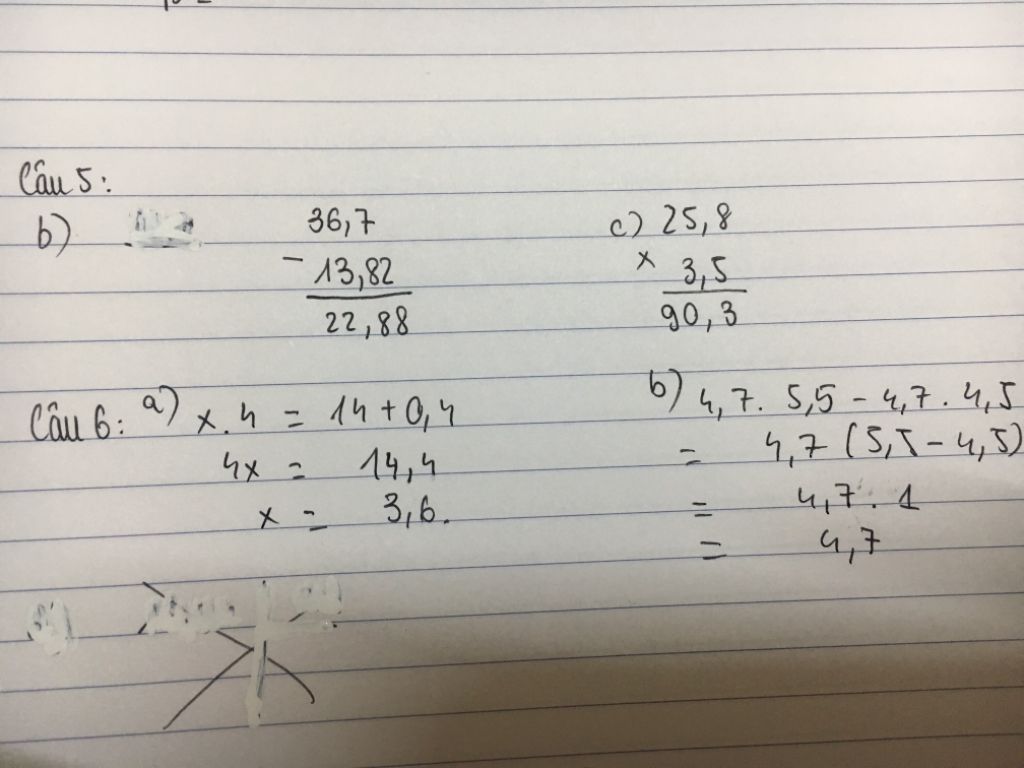 Câu 5:
b) 36,7
- 13,82
22,88
c) 25,8
x 3,5
90,3
Câu 6: a) x.4 = 14 + 0,4
4x = 14,4
x = 3,6.
b) 4,7. 5,5 - 4,7. 4,5
= 4,7 (5,5 - 4,5)
= 4,7. 1
= 4,7